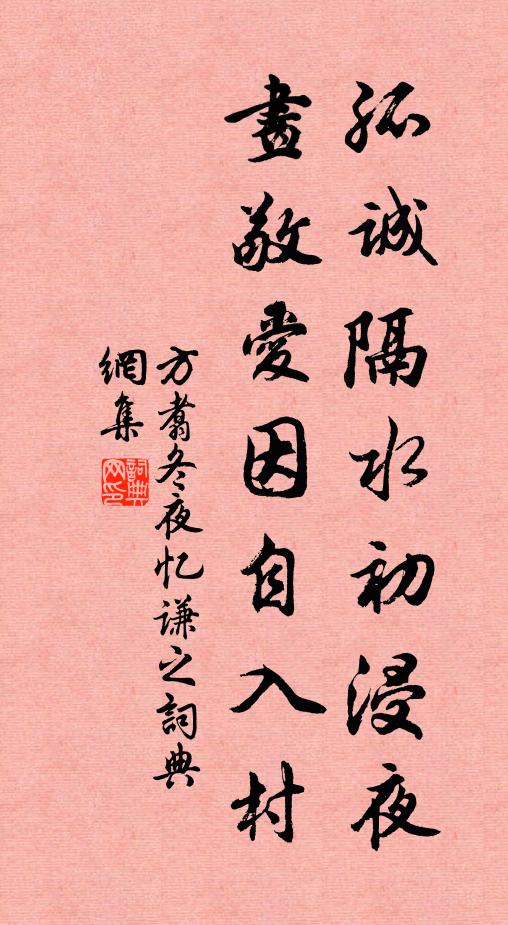 孤诚隔水初浸夜
畫敬愛因自入村
方翥冬夜忆謙之詞典
網集
詞典
网印